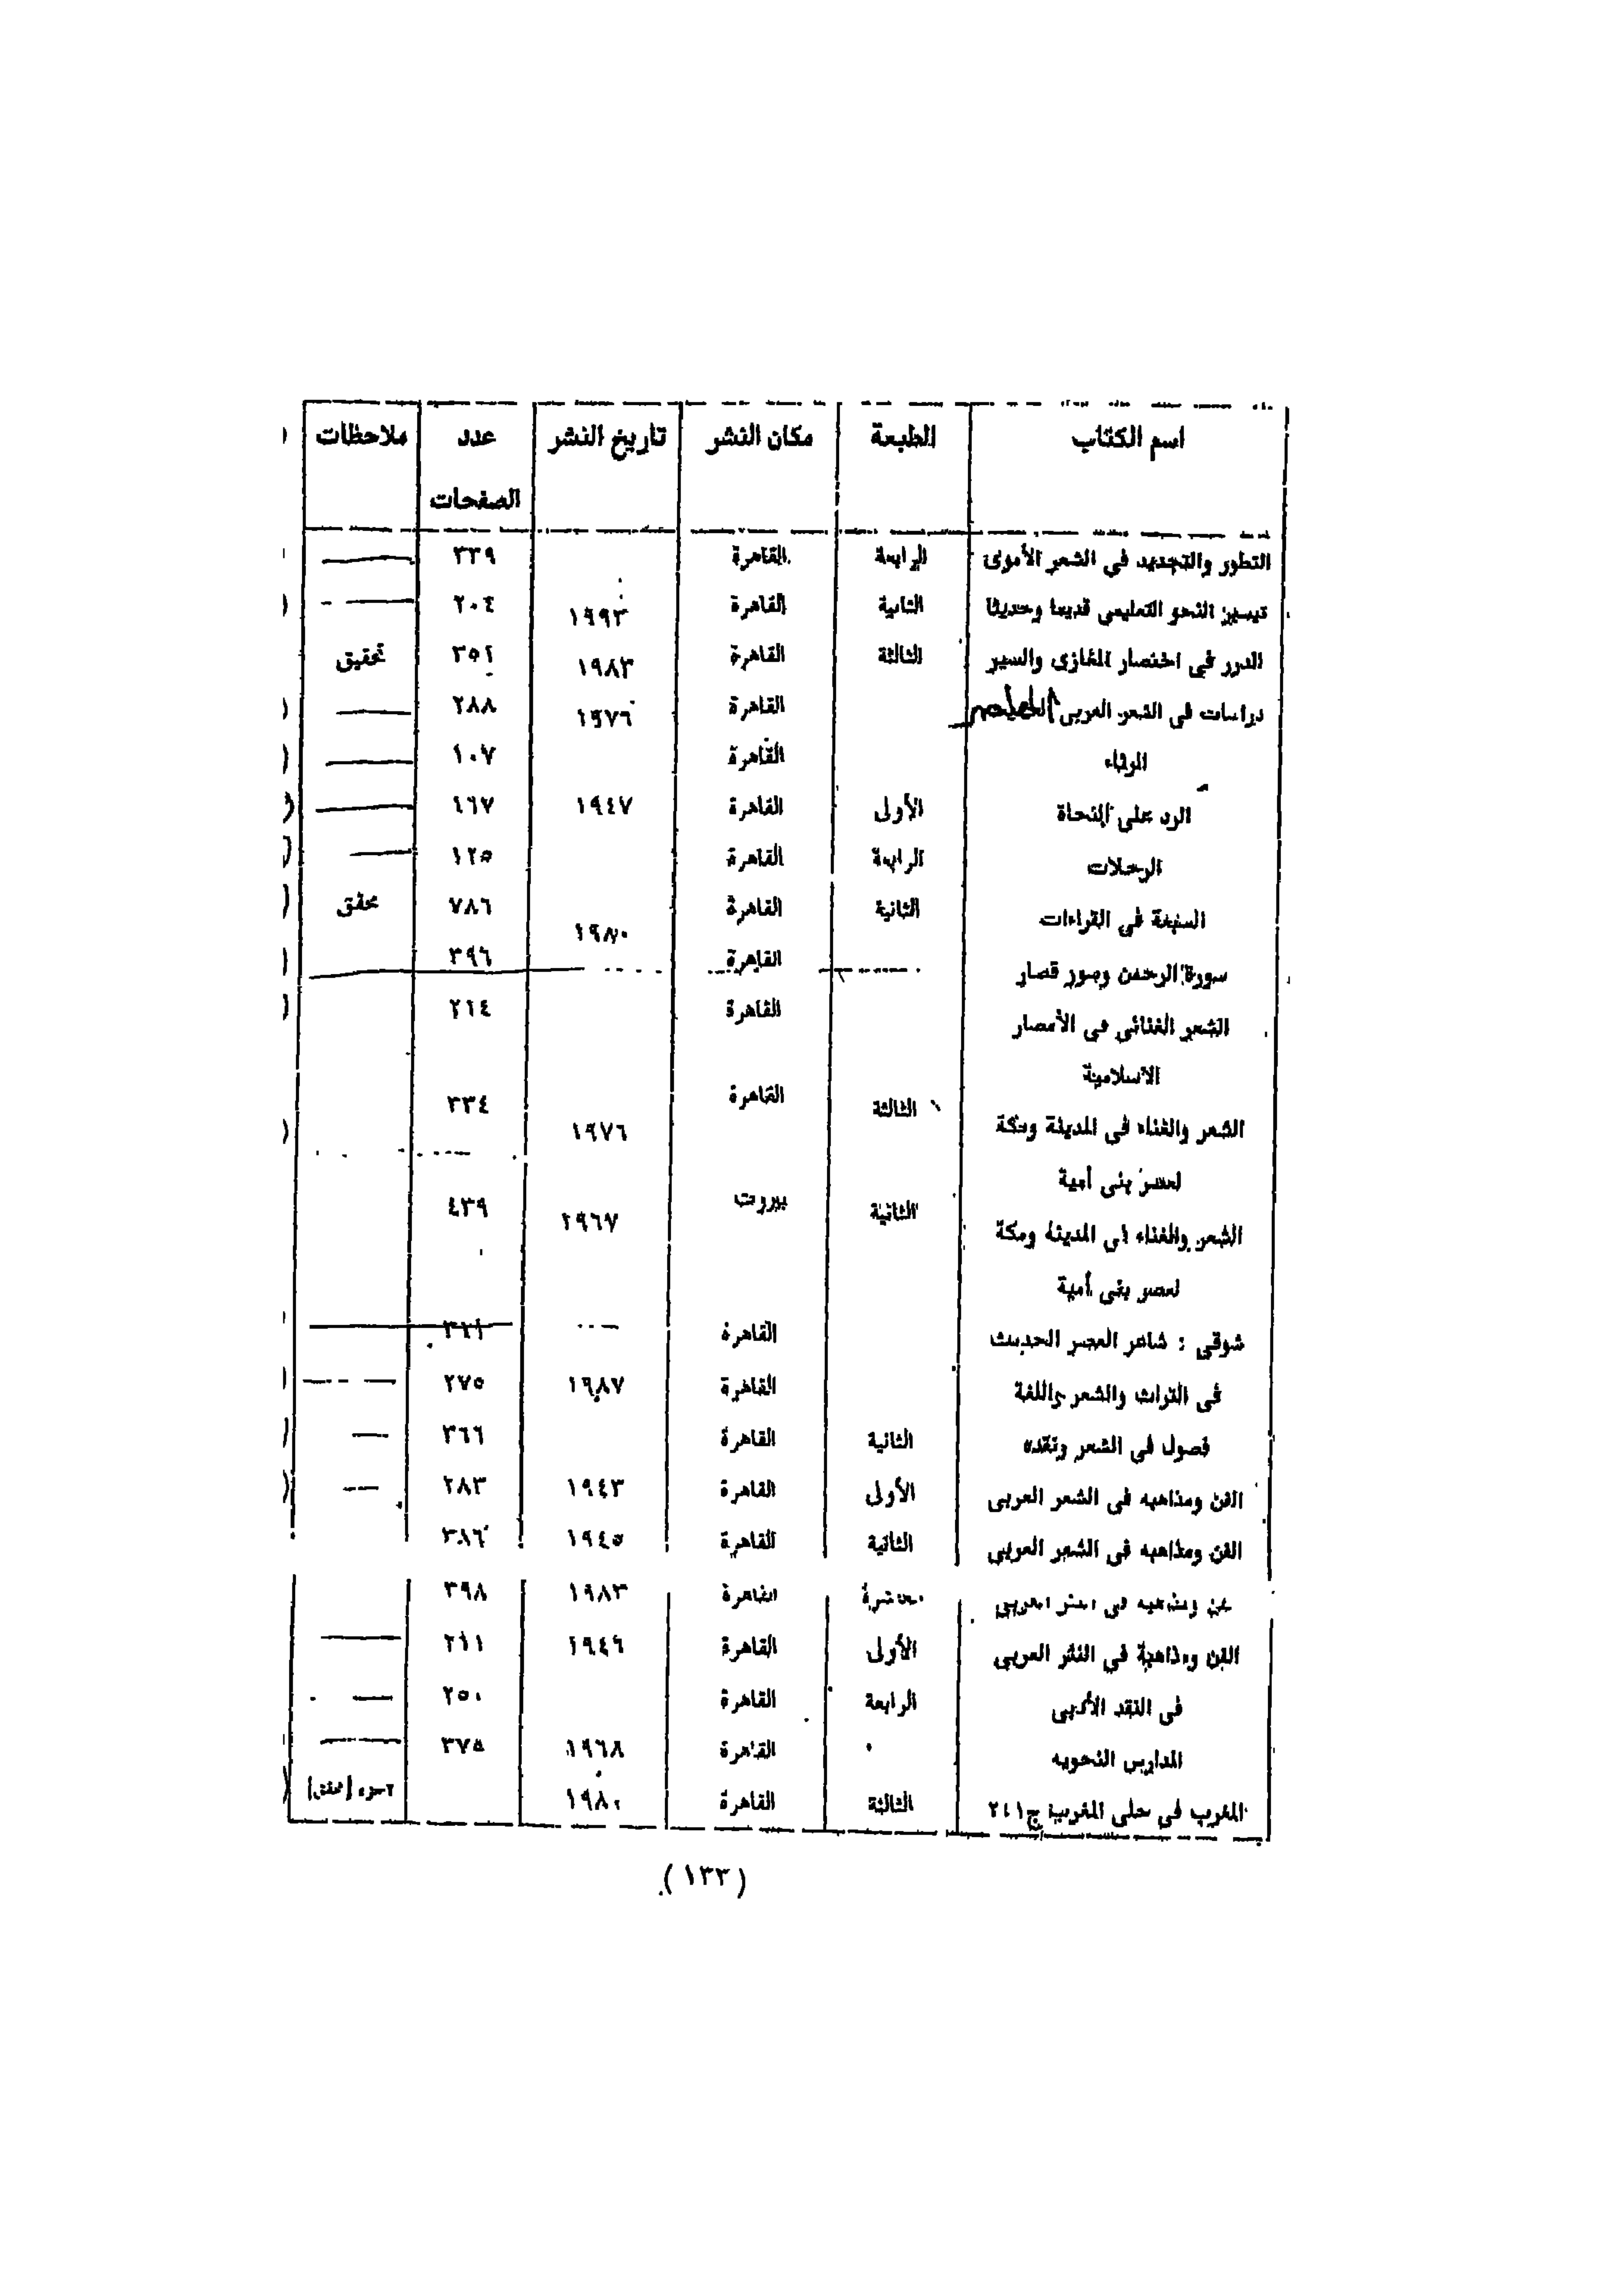 اسم الكتاب الطبعة مكان النشر تاريخ النشر عدد ملاحظات
الصفحات
التطور والتجديد في الشعر الأموى الرابعة القاهرة ٣٣٩
تيسير النحو التعليمى قديما وحديثا الثانية القاهرة ١٩٩٣ ٢٠٤
الدرر في اختصار المغازى والسير الثالثة القاهرة ١٩٨٣ تحقيق
دراسات في الشعر العربى المعاصر القاهرة ١٩٧٦ ٢٨٨
الرثاء القاهرة ١٠٧
الرد على النحاة الأولى القاهرة ١٩٤٧ ١٦٧
الرحلات الرابعة القاهرة ١٢٥
السبعة في القراءات الثانية القاهرة ١٩٨٠ ٧٨٦ محقق
سورة الرحمن وسور قصار القاهرة ٣٩٦
الشعر الغنائي في الأمصار القاهرة
الاسلامية
الشعر والغناء في المدينة ومكة الثالثة القاهرة ١٩٧٦ ٣٣٤
لعصر بنى أمية
الشعر والغناء في المدينة ومكة الثانية بيروت ١٩٦٧ ٤٣٩
لعصر بنى أمية
شوقي : شاعر العصر الحديث القاهرة
في التراث والشعر واللغة القاهرة ١٩٨٧ ٢٧٥
فصول في الشعر ونقده الثانية القاهرة ٣٦٦
الفن ومذاهبه في الشعر العربى الأولى القاهرة ١٩٤٣ ٢٨٣
الفن ومذاهبه في الشعر العربى الثانية القاهرة ١٩٤٥ ٣٨٦
ومذاهبه في النثر العربى القاهرة ١٩٨٣ ٣٩٨
الفن ومذاهبة في النثر العربى الأولى القاهرة ١٩٤٦
في النقد الأدبى الرابعة القاهرة ٢٥٠
المدارس النحويه القاهرة ١٩٦٨ ٣٧٥
المغرب في حلى المغرب ج٢،١ الثالثة القاهرة ١٩٨٠ ٢جزء [محقق]
(١٣٣)